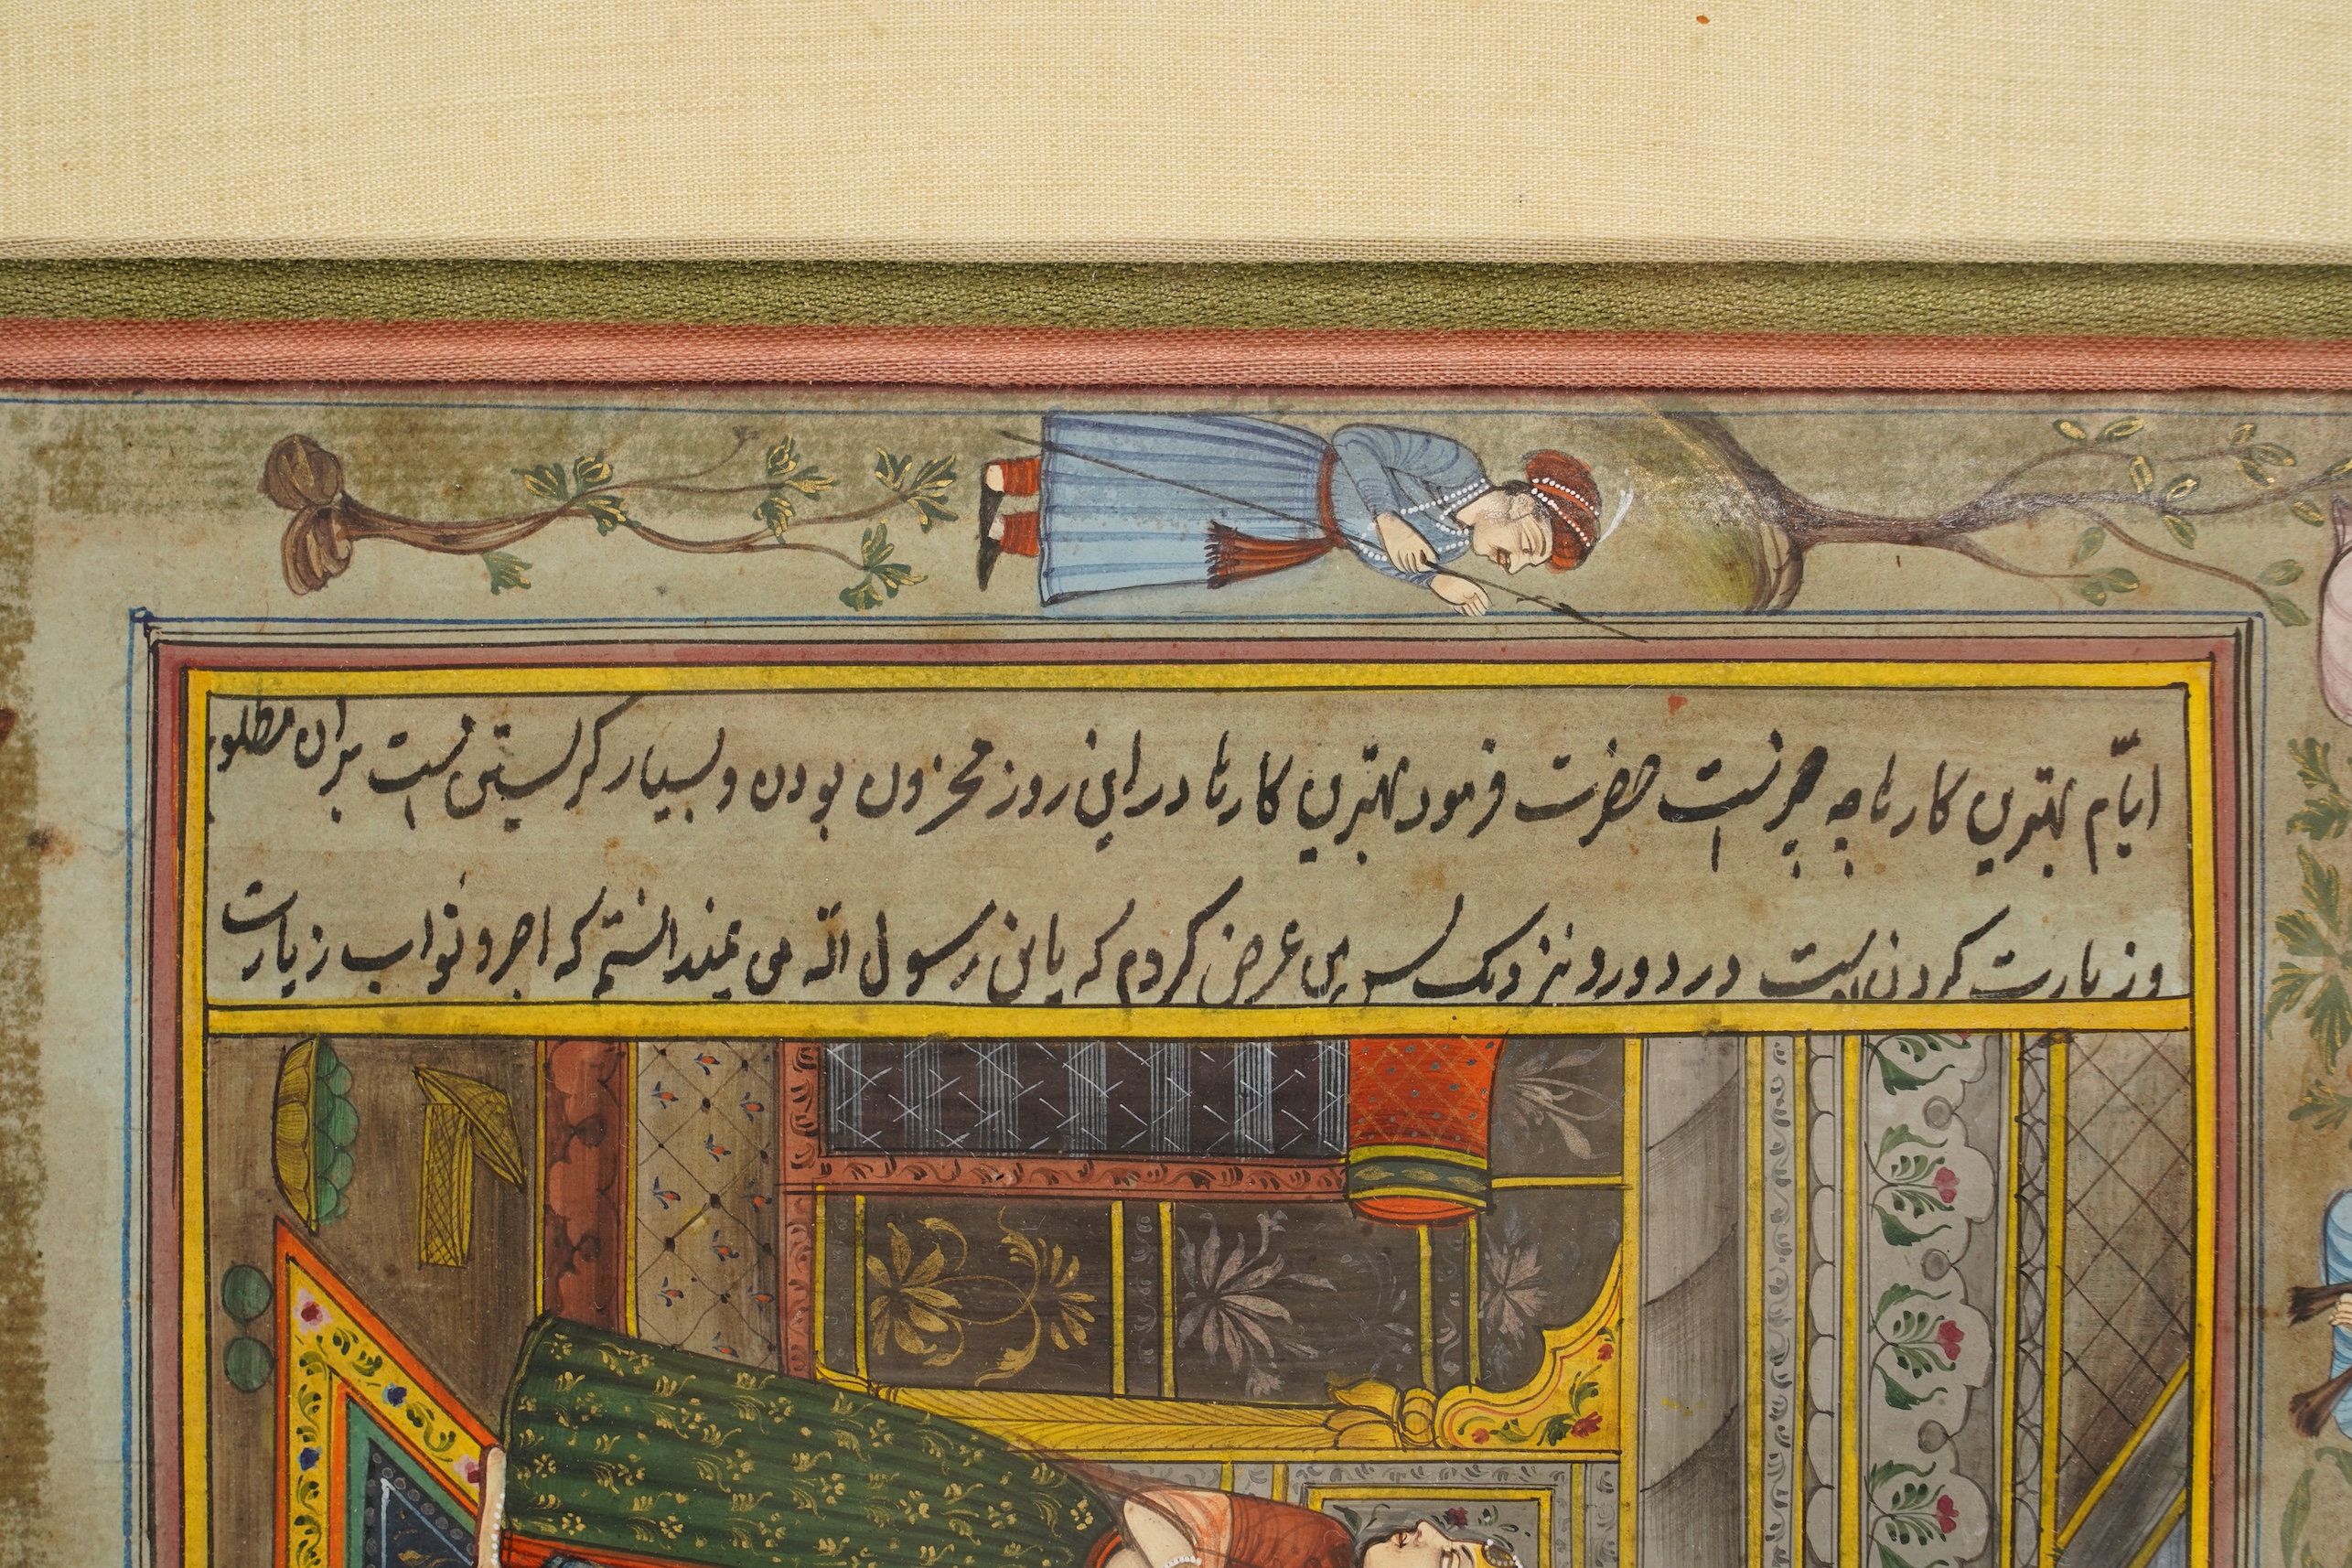 ایّام بهترین کارها چه چیزست حضرت فرمود بهترین کارها در این روز محزون بودن و بسیار کریستین است بران مظلو
و زیارت کردن است در دور و نزدیک پس من عرض کردم که یا بن رسول الله من نمیدانستم که اجر و ثواب زیارت